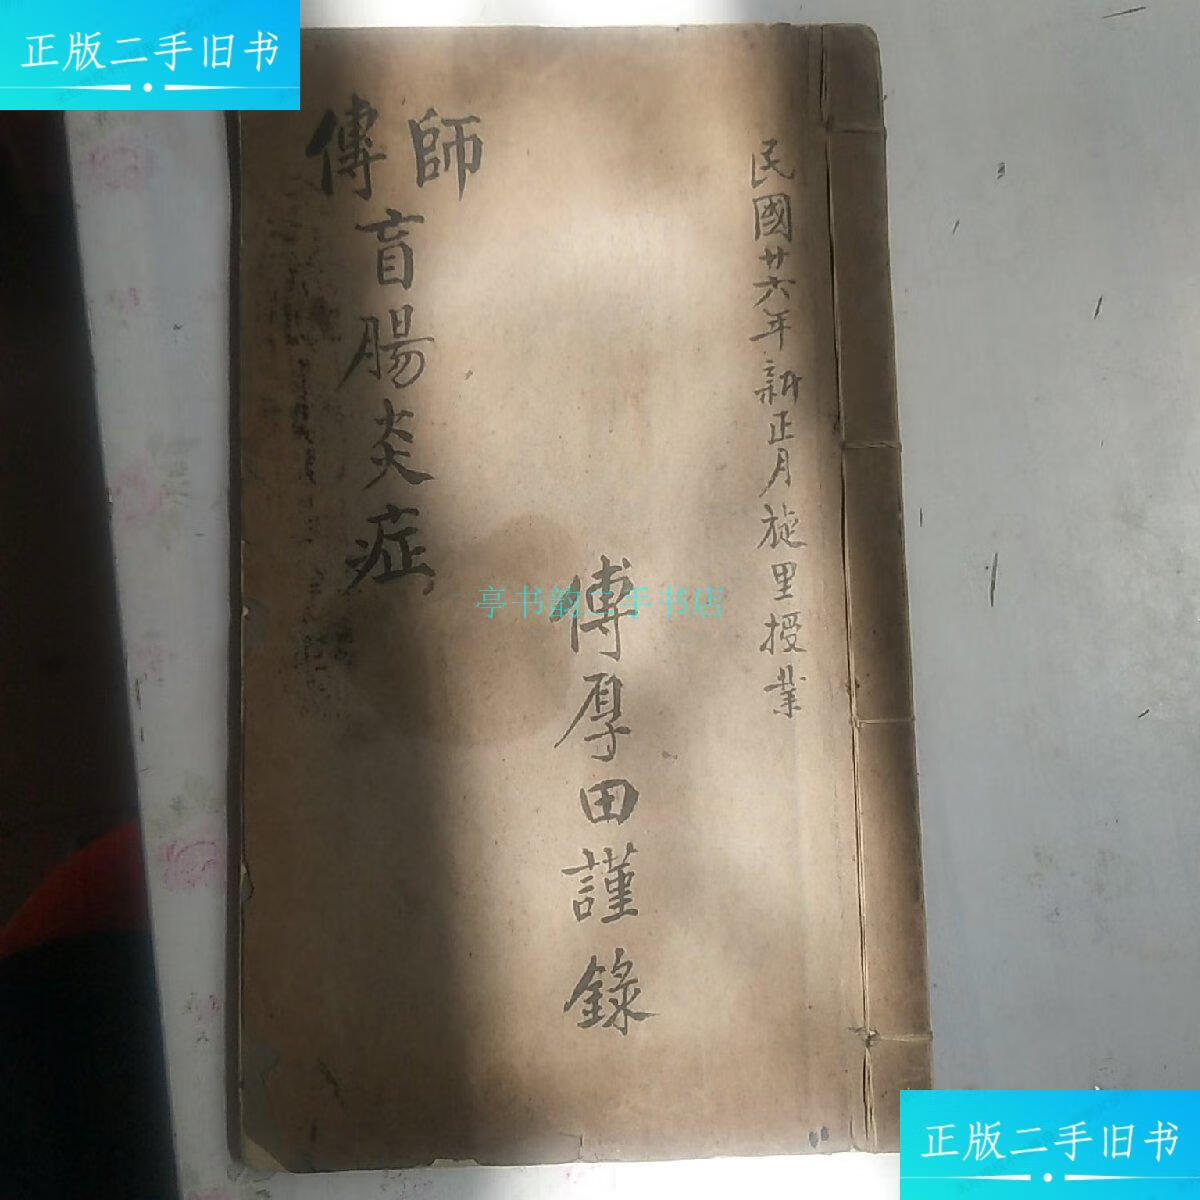 正版二手旧书
民國廿六年新正月旋里授業
師傳
盲腸炎症
傅厚田謹錄
亭书韵二手书店
正版二手旧书